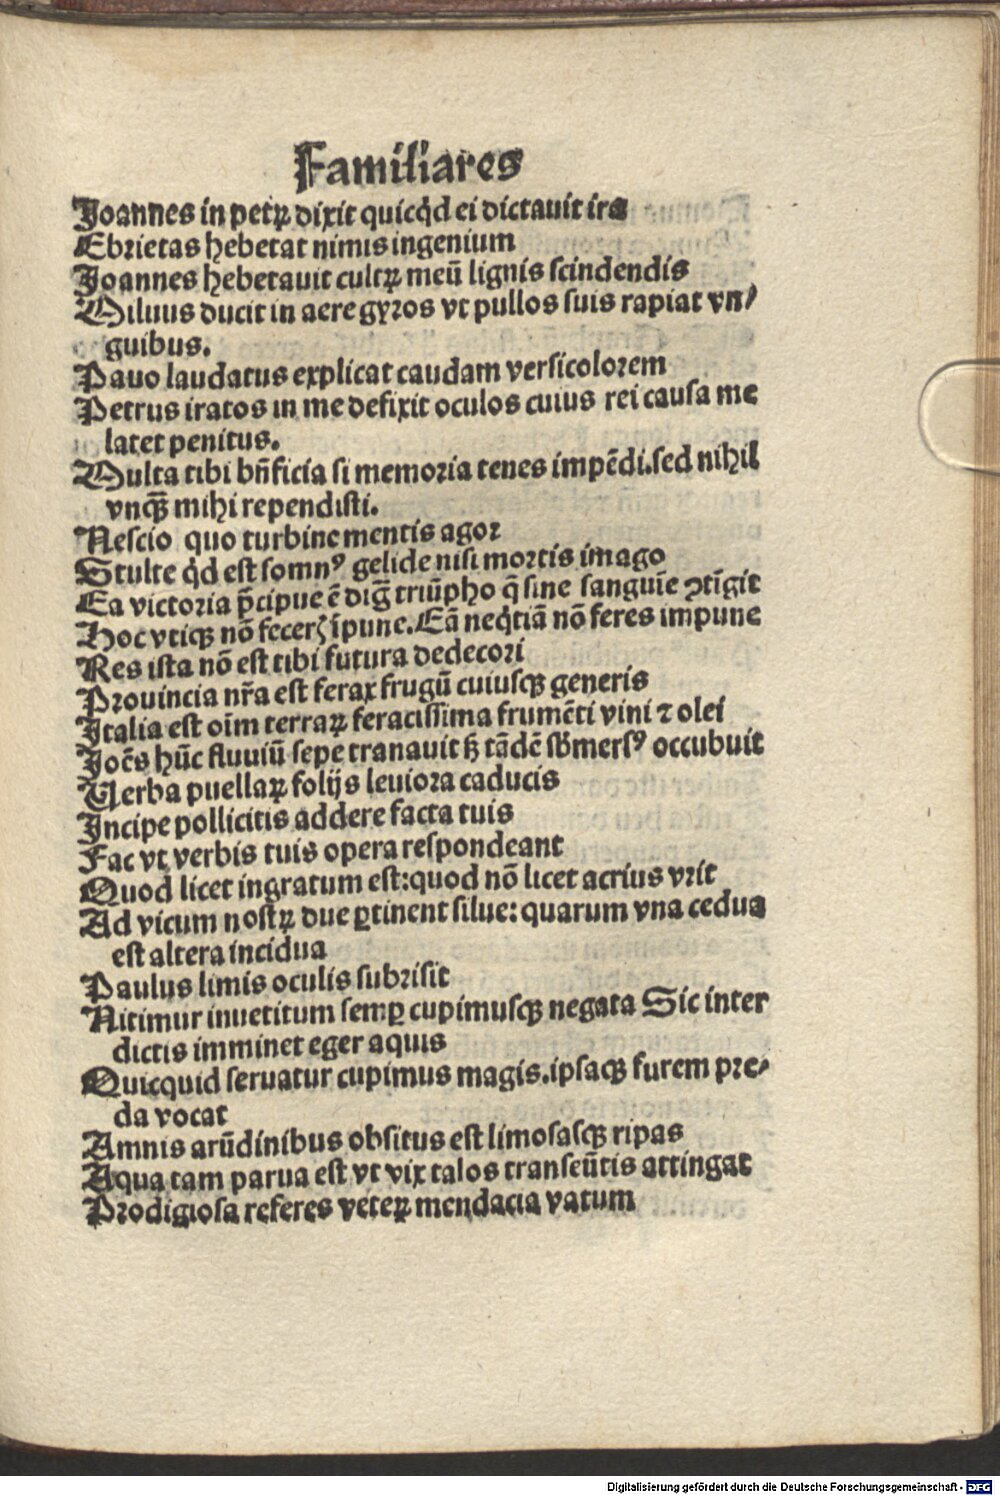 Familiares
Joannes in petꝝ dixit quicq̇d ei dictauit ira
Ebrietas hebetat nimis ingenium
Joannes hebetauit cultꝝ meū lignis scindendis
Miluus ducit in aere gyros vt pullos suis rapiat vn/
guibus.
Pauo laudatus explicat caudam versicolorem
Petrus iratos in me defixit oculos cuius rei causa me
latet penitus.
Multa tibi bn̄ficia si memoria tenes impēdi.sed nihil
vnqꝫ̄ mihi rependisti.
Nescio quo turbine mentis agor
Stulte q̇d est somnꝰ gelide nisi mortis imago
Ea victoria p̄cipue ē diḡ triūpho q̄ sine sanguīe ꝯtīgit
Hoc vtiqꝫ nō fecerꝭ īpune.Eā neq̇tiā nō feres impune
Res ista nō est tibi futura dedecori
Prouincia nr̄a est ferax frugū cuiusqꝫ generis
Italia est oīm terraꝝ feracissima frumēti vini ⁊ olei
Joēs hūc fluuiū sepe tranauit hꝫ tādē sb̄mersꝰ occubuit
Verba puellaꝝ folijs leuiora caducis
Incipe pollicitis addere facta tuis
Fac vt verbis tuis opera respondeant
Quod licet ingratum est:quod nō licet acrius vrit
Ad vicum nostꝝ due ꝑtinent silue:quarum vna cedua
est altera incidua
Paulus limis oculis subrisit
Nitimur inuetitum semꝑ cupimusqꝫ negata Sic inter
dictis imminet eger aquis
Quicquid seruatur cupimus magis.ipsaqꝫ furem pre/
da vocat
Amnis arūdinibus obsitus est limosasqꝫ ripas
Aqua tam parua est vt vix talos transeūtis attingat
Prodigiosa referes veteꝝ mendacia vatum
Digitalisierung gefördert durch die Deutsche Forschungsgemeinschaft - DFG